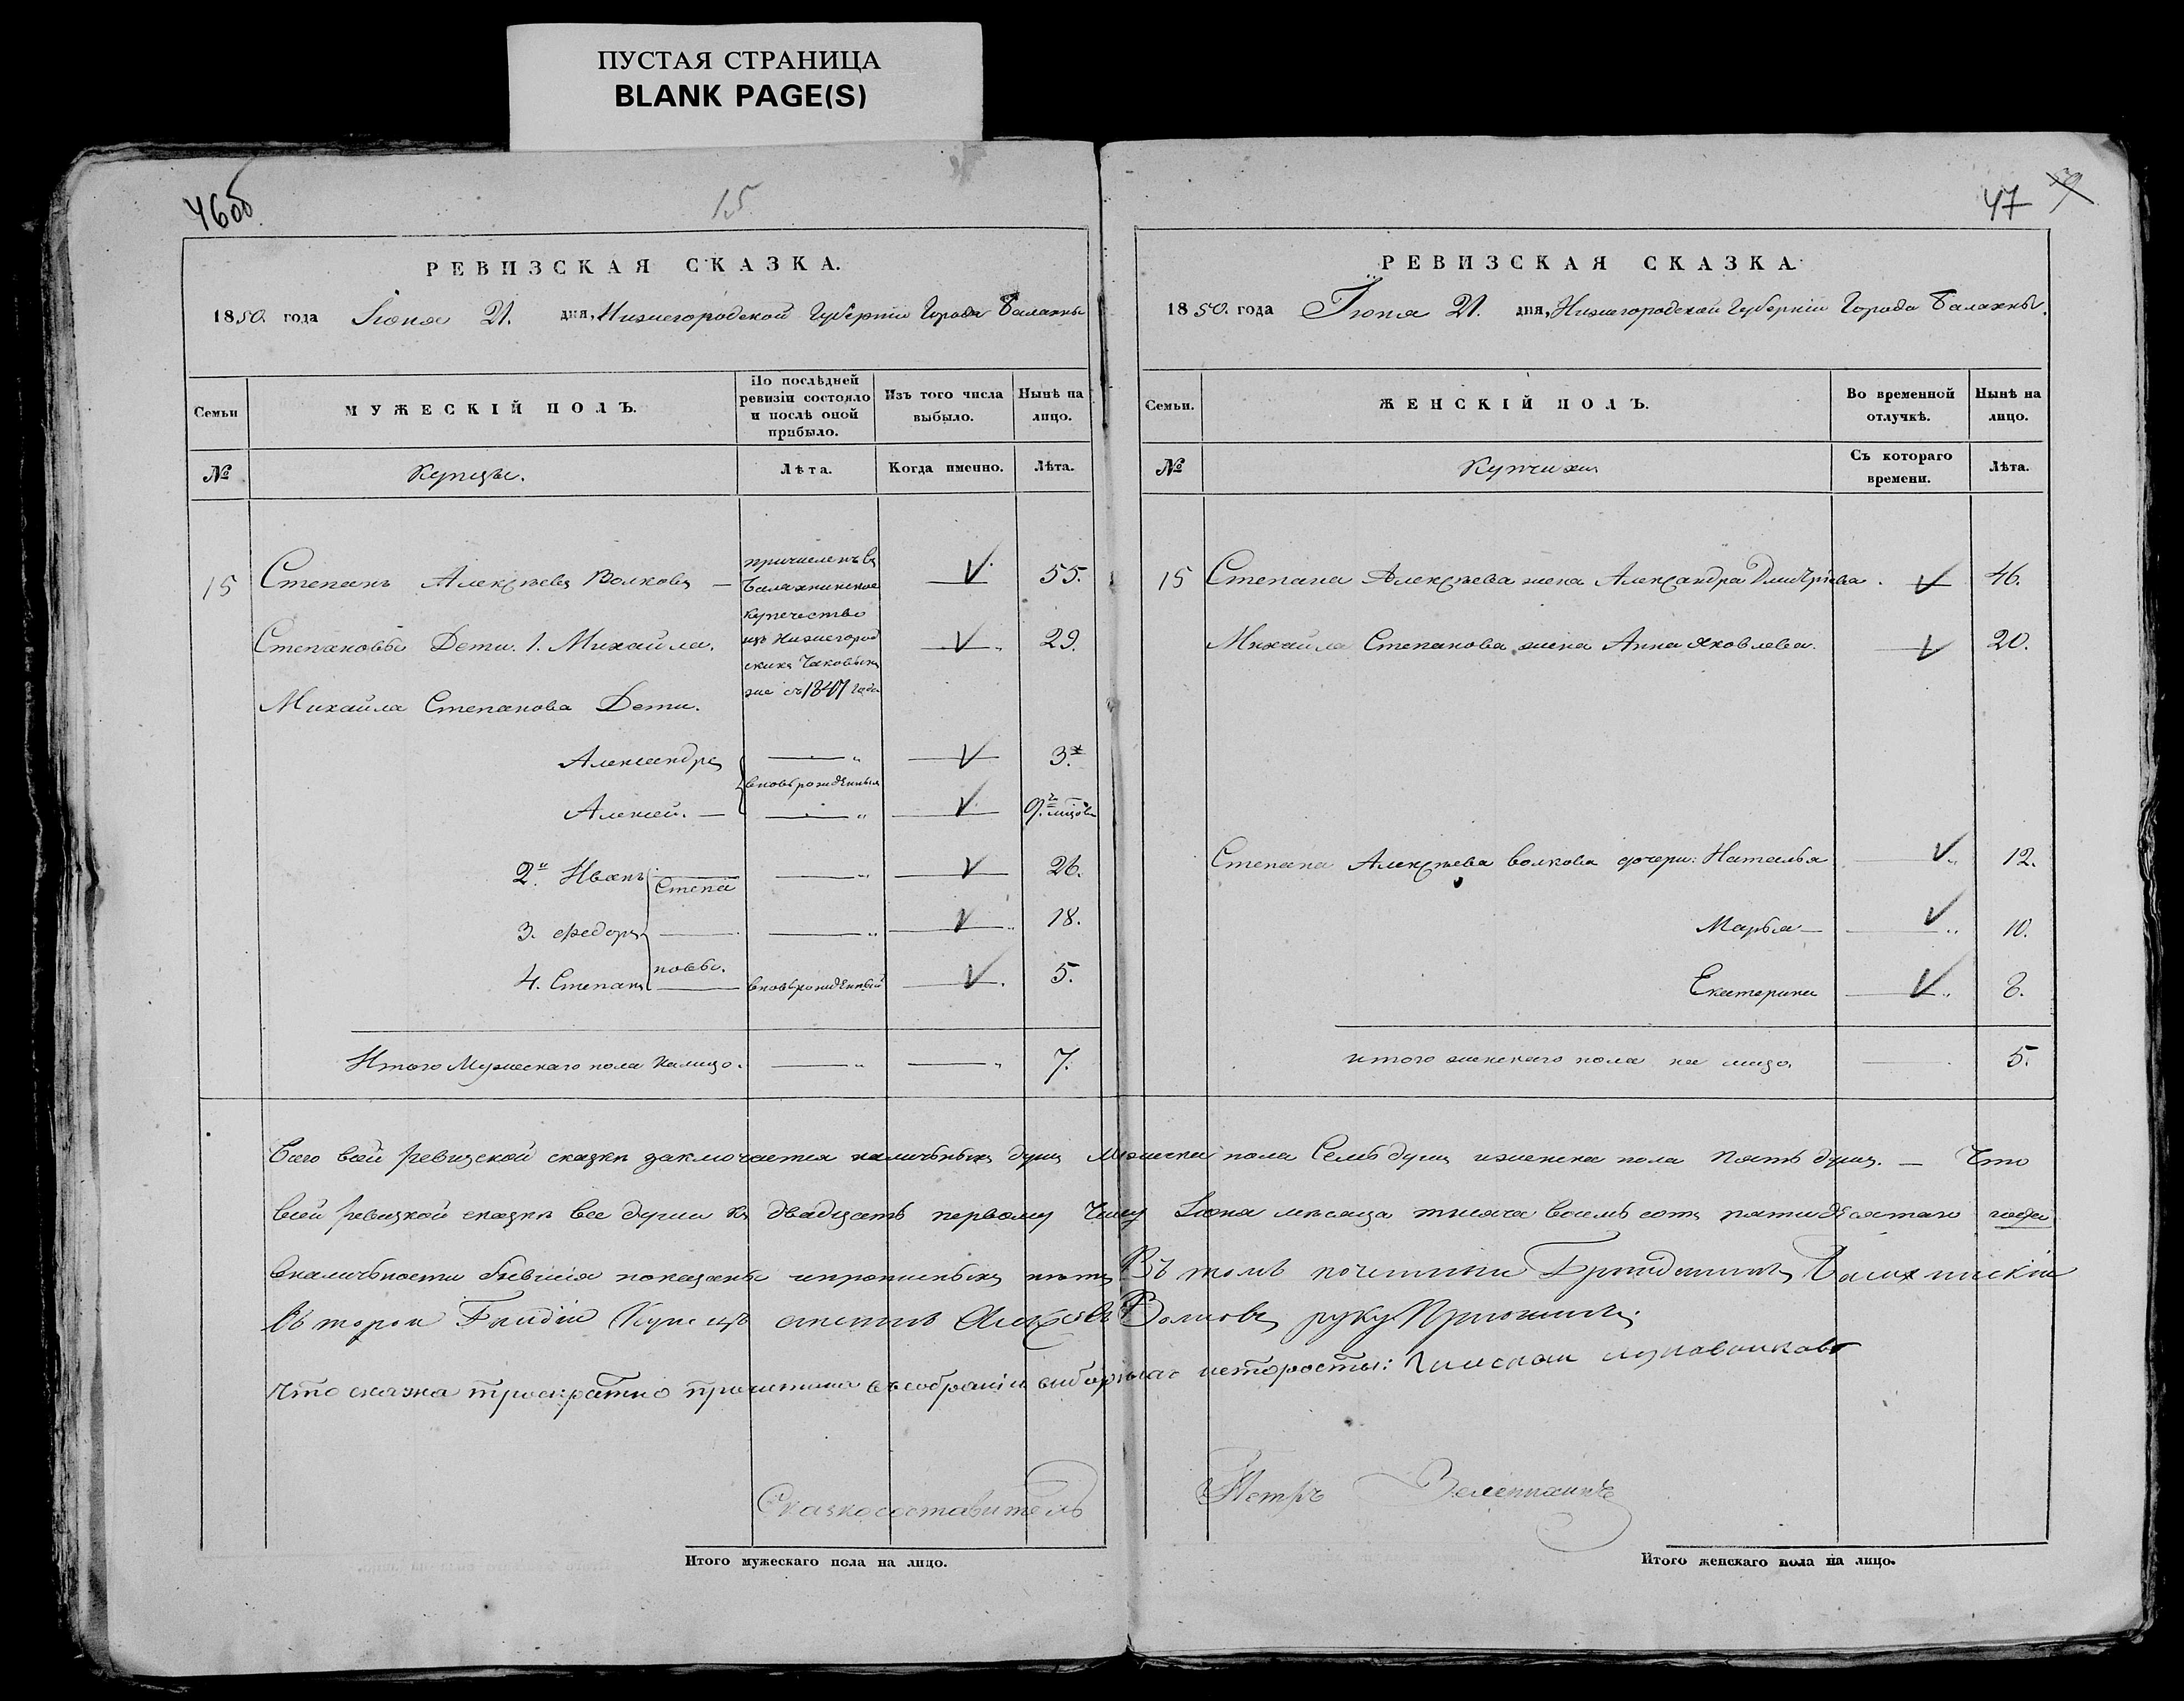 ПУСТАЯ СТРАНИЦА
BLANK PAGE(S)
46об
15
РЕВИЗСКАЯ СКАЗКА.
1850. года Іюня 21. дня, Нижегородской Губерніи Города Балахны
Семьи
МУЖЕСКІЙ ПОЛЪ.
По послѣдней ревизіи состояло и послѣ оной прибыло.
Изъ того числа выбыло.
Нынѣ на лицо.
№
Купцы.
Лѣта.
Когда именно.
Лѣта.
15 Степанъ Алексѣевъ Волковъ — 55.
причисленъ въ
Балахнинское
купечество
изъ Нижегород
скихъ таковыхъ
же съ 1847 года
Степановы Дети. 1. Михайла. 29.
Михайла Степанова Дети.
Александръ 3.
вновьрожденныя
Алексей. — 9.
2й Иванъ 26.
Степа
3. Федоръ 18.
новы.
4. Степанъ вновьрожденный 5.
Итого Мужескаго пола налицо. 7.
47
РЕВИЗСКАЯ СКАЗКА.
1850. года Іюня 21. дня, Нижегородской Губерніи Города Балахны.
Семьи.
ЖЕНСКІЙ ПОЛЪ.
Во временной отлучкѣ.
Нынѣ на лицо.
№
Купчихи
Съ котораго времени.
Лѣта.
15 Степана Алексѣева жена Александра Дмитріева. 46.
Михайла Степанова жена Анна Яковлева. 20.
Степана Алексѣева волкова дочери: Наталья 12.
Марья — 10.
Екатерина 8.
итого женскаго пола на лицо. 5.
Всего всей ревизской сказки заключается наличныхъ душъ Мужеска пола Семь душъ и женска пола Пять душъ. — Что
всей ревизкой сказки все души къ двадцать первому Числу Іюня месяца тысяча восемь сотъ пятидесятаго года
вналичности бывшия показаны и прописныхъ нѣтъ Въ томъ Балахнинскій
Второй Гильдіи Купецъ степанъ Алексѣевъ Волковъ руку Приложилъ
Что сказка троекратно прочитана въ собраніи
Сказкосоставитель Петръ
Итого мужескаго пола на лицо.
Итого женскаго пола на лицо.